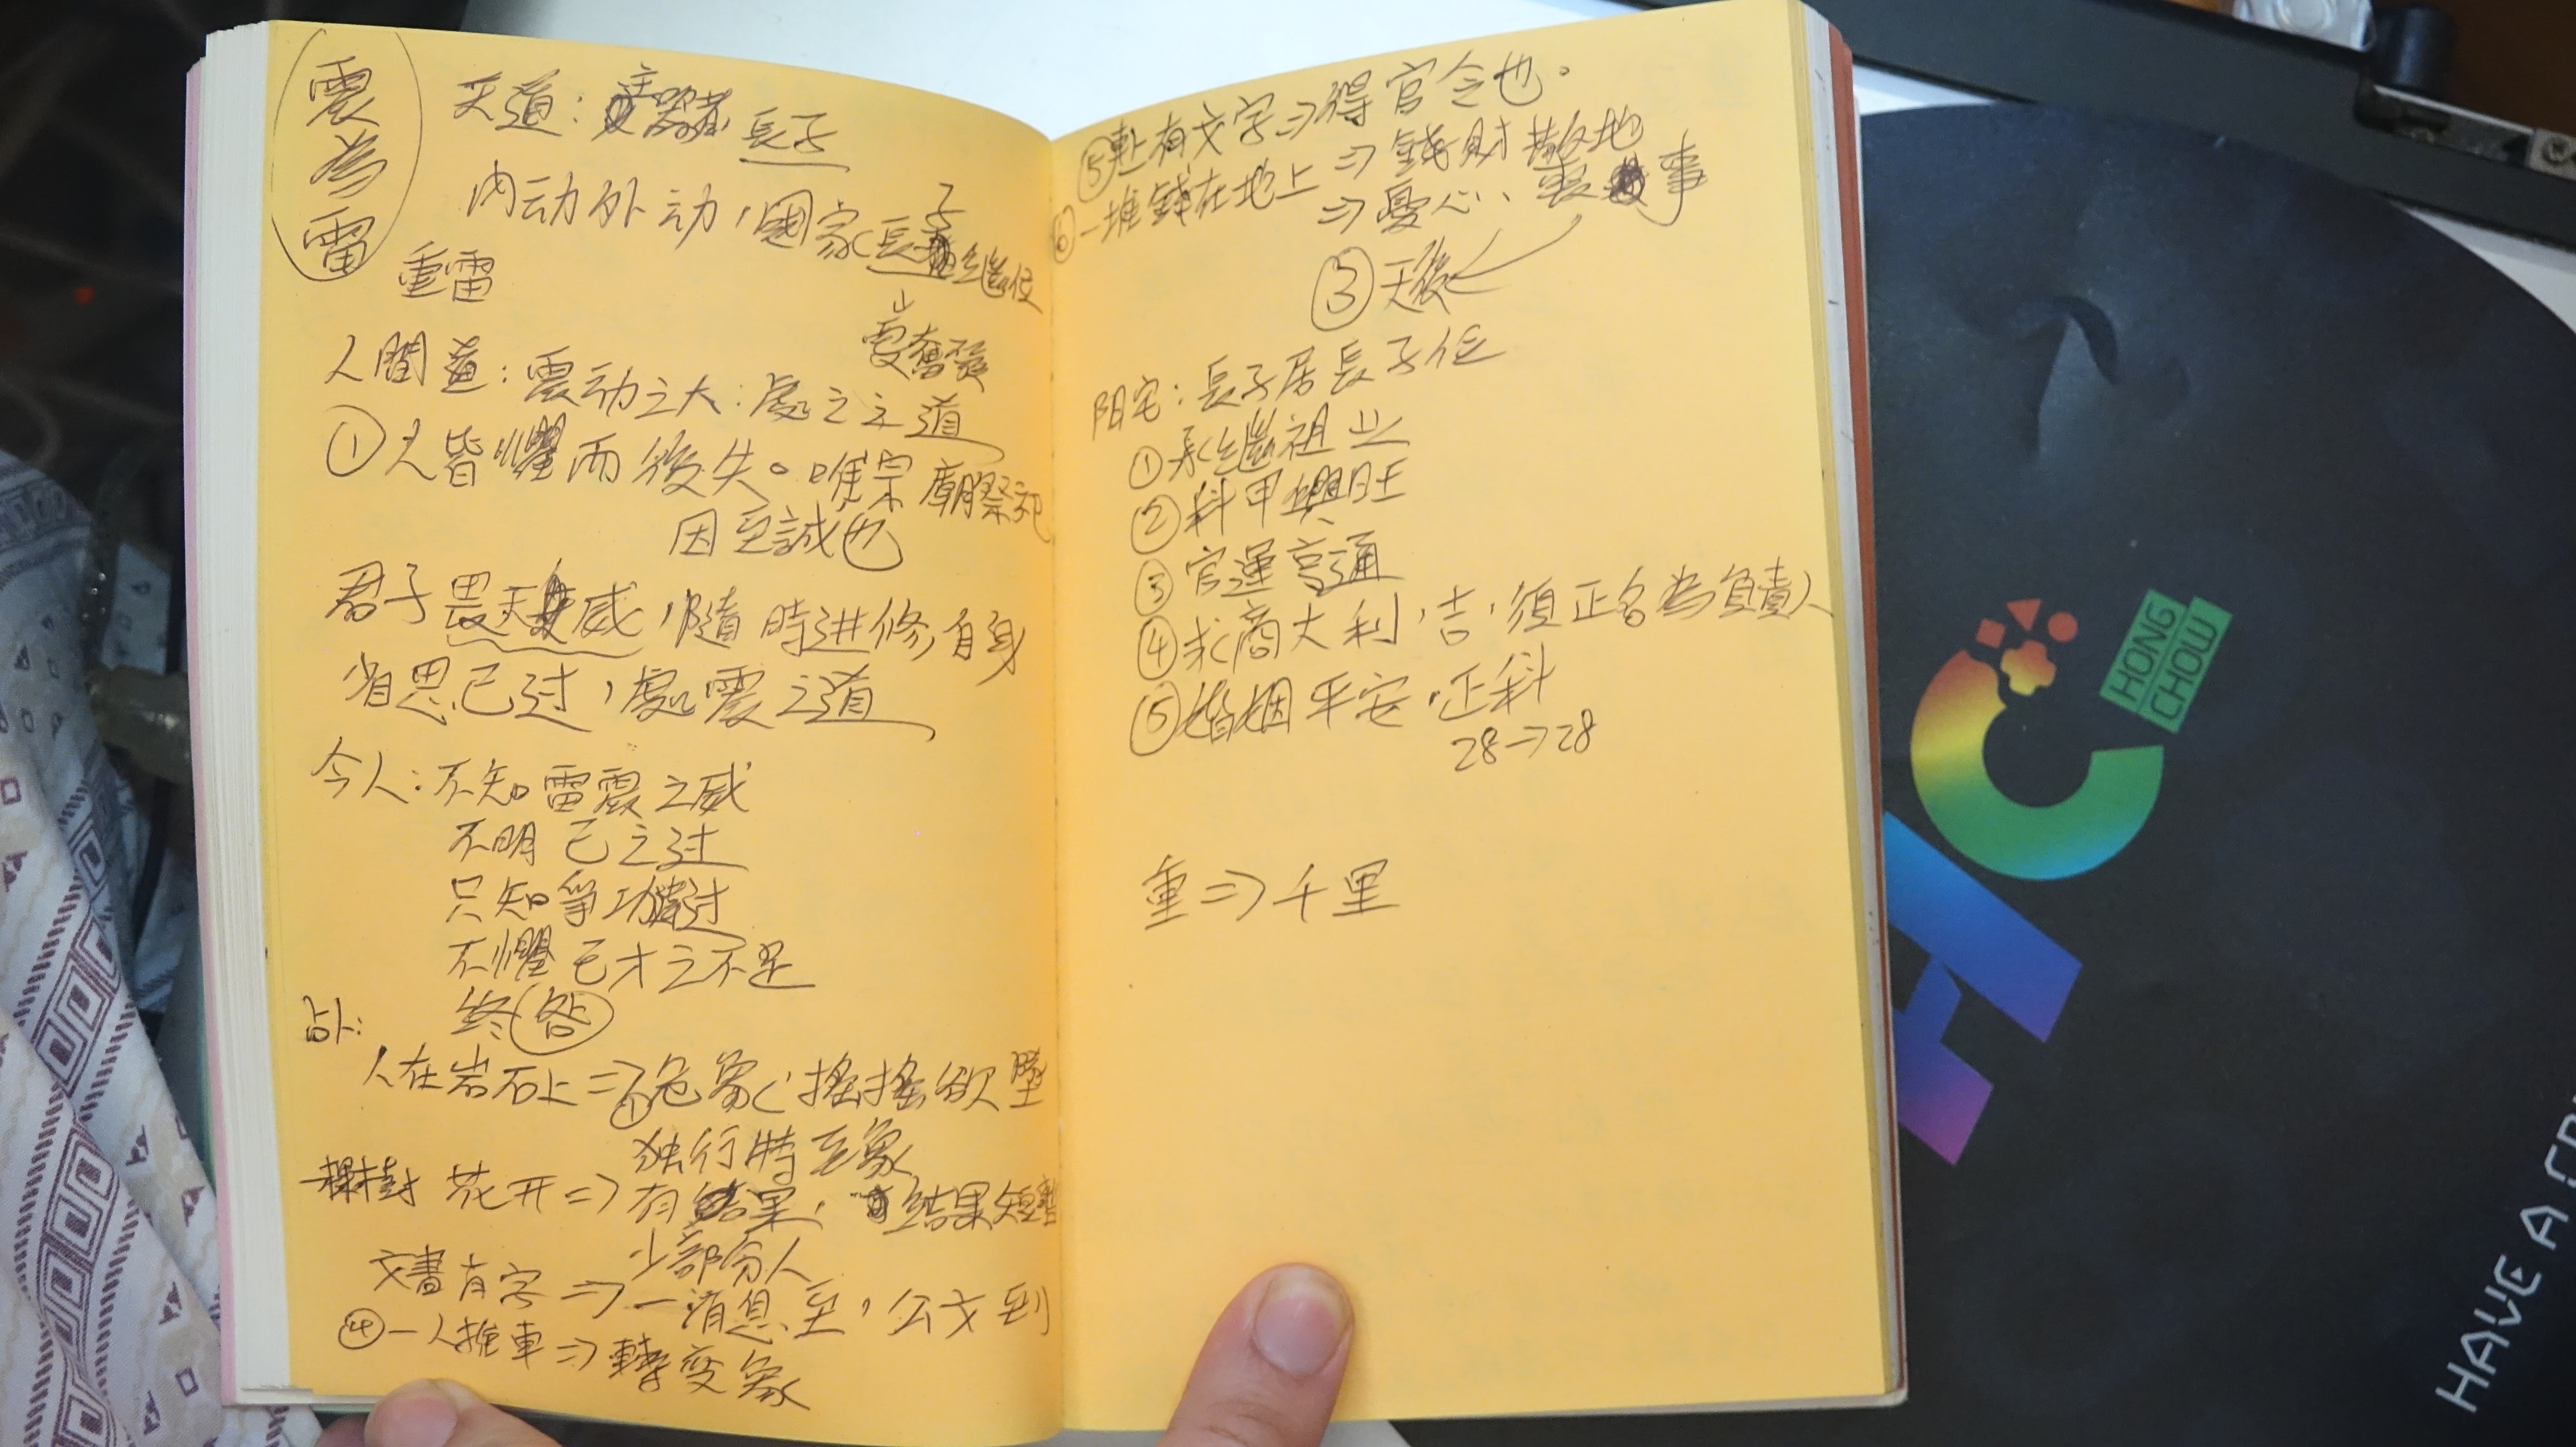 震為雷
重雷
天道：主器者長子
內动外动，國家長子繼位
要奮發
人間道：震动之大：處之之道
①人皆懼而後失。唯宗廟祭祀
因至誠也
君子畏天威，隨時进修自身
省思己过，處震之道
今人：不知雷震之威
不明己之过
只知爭功諉过
不懼己才之不足
終咎
占卜：
人在岩石上⇒①危象（搖搖欲墜
独行特立象
一棵樹花开⇒有結果，结果短暫
少部份人
文書有字⇒一消息至，公文到
④一人推車⇒轉变象
⑤赴有文字⇒得官令也。
⑥一堆錢在地上⇒錢財散地
⇒憂心、喪事
③天後
阳宅：長子居長子位
①承繼祖业
②科甲興旺
③官運亨通
④求商大利，吉，須正名為負責人
⑤婚姻平安，正斜
28→28
重⇒千里
HONG
CHOW
HC
HAVE A